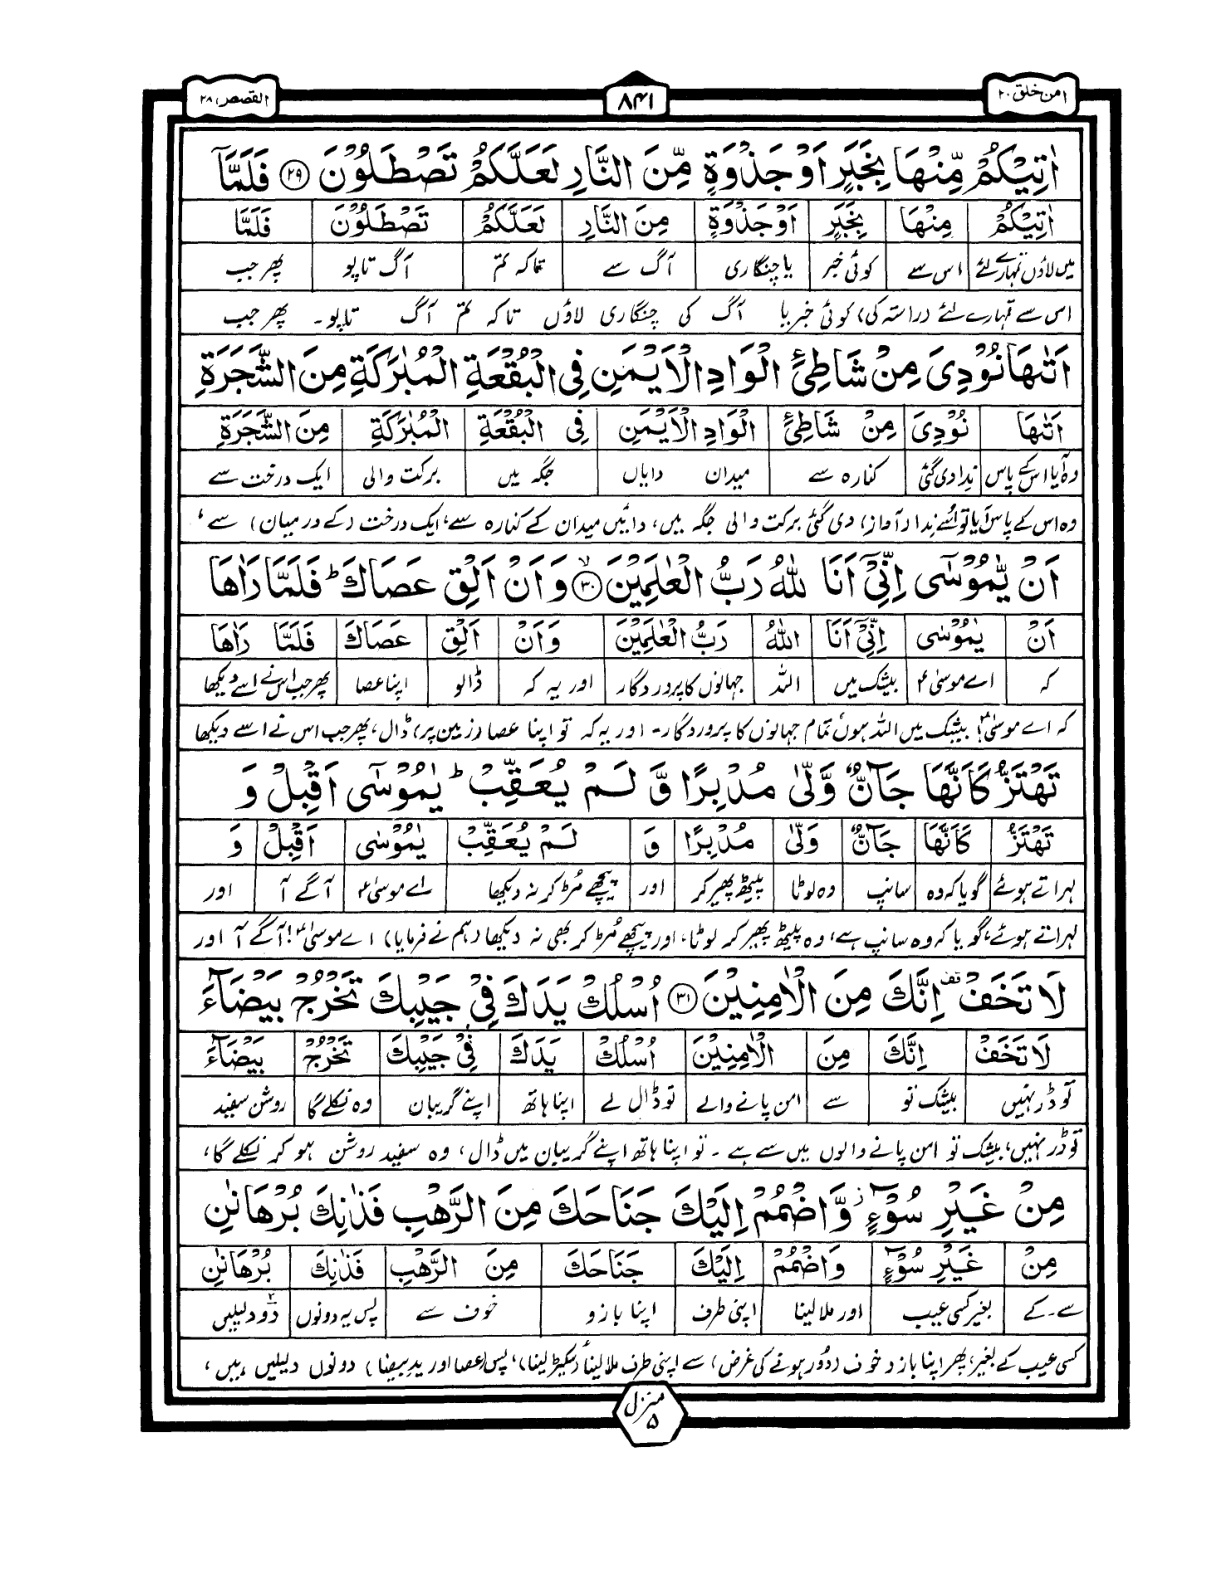 امن خلق ۲۰
۸۴۱
القصص ۲۸
اٰتِيْكُمْ مِّنْهَا بِخَبَرٍ اَوْ جَذْوَةٍ مِّنَ النَّارِ لَعَلَّكُمْ تَصْطَلُوْنَ ﴿۲۹﴾ فَلَمَّآ
اٰتِيْكُمْ مِنْهَا بِخَبَرٍ اَوْ جَذْوَةٍ مِنَ النَّارِ لَعَلَّكُمْ تَصْطَلُوْنَ فَلَمَّا
میں لاؤں تمہارے لئے اس سے کوئی خبر یا چنگاری آگ سے تاکہ تم آگ تاپو پھر جب
اس سے تمہارے لئے (راستہ کی) کوئی خبر یا آگ کی چنگاری لاؤں تاکہ تم آگ تاپو۔ پھر جب
اَتٰىهَا نُوْدِيَ مِنْ شَاطِئِ الْوَادِ الْاَيْمَنِ فِي الْبُقْعَةِ الْمُبٰرَكَةِ مِنَ الشَّجَرَةِ
اَتٰىهَا نُوْدِيَ مِنْ شَاطِئِ الْوَادِ الْاَيْمَنِ فِي الْبُقْعَةِ الْمُبٰرَكَةِ مِنَ الشَّجَرَةِ
وہ آیا اس کے پاس ندا دی گئی کنارہ سے میدان دایاں جگہ میں برکت والی ایک درخت سے
وہ اس کے پاس آیا تو اسے ندا (آواز) دی گئی برکت والی جگہ میں، دائیں میدان کے کنارہ سے، ایک درخت (کے درمیان) سے،
اَنْ يّٰمُوْسٰٓى اِنِّيْٓ اَنَا اللّٰهُ رَبُّ الْعٰلَمِيْنَ ﴿۳۰﴾ وَاَنْ اَلْقِ عَصَاكَ ؕ فَلَمَّا رَاٰهَا
اَنْ يٰمُوْسٰى اِنِّيْٓ اَنَا اللّٰهُ رَبُّ الْعٰلَمِيْنَ وَاَنْ اَلْقِ عَصَاكَ فَلَمَّا رَاٰهَا
کہ اے موسیٰ۴ بیشک میں اللہ جہانوں کا پروردگار اور یہ کہ ڈالو اپنا عصا پھر جب اس نے اسے دیکھا
کہ اے موسیٰ۴! بیشک میں اللہ ہوں تمام جہانوں کا پروردگار۔ اور یہ کہ تو اپنا عصا (زمین پر) ڈال، پھر جب اس نے اسے دیکھا
تَهْتَزُّ كَاَنَّهَا جَآنٌّ وَّلّٰى مُدْبِرًا وَّ لَمْ يُعَقِّبْ ؕ يٰمُوْسٰٓى اَقْبِلْ وَ
تَهْتَزُّ كَاَنَّهَا جَآنٌّ وَلّٰى مُدْبِرًا وَ لَمْ يُعَقِّبْ يٰمُوْسٰى اَقْبِلْ وَ
لہراتے ہوئے گویا کہ وہ سانپ وہ لوٹا پیٹھ پھیر کر اور پیچھے مڑ کر نہ دیکھا اے موسیٰ۴ آگے آ اور
لہراتے ہوئے، گویا کہ وہ سانپ ہے، وہ پیٹھ پھیر کر لوٹا، اور پیچھے مُڑ کر بھی نہ دیکھا (ہم نے فرمایا) اے موسیٰ۴! آگے آ اور
لَا تَخَفْ قف اِنَّكَ مِنَ الْاٰمِنِيْنَ ﴿۳۱﴾ اُسْلُكْ يَدَكَ فِيْ جَيْبِكَ تَخْرُجْ بَيْضَآءَ
لَا تَخَفْ اِنَّكَ مِنَ الْاٰمِنِيْنَ اُسْلُكْ يَدَكَ فِيْ جَيْبِكَ تَخْرُجْ بَيْضَآءَ
تو ڈر نہیں بیشک تو سے امن پانے والے تو ڈال لے اپنا ہاتھ اپنے گریبان وہ نکلے گا روشن سفید
تو ڈر نہیں، بیشک تو امن پانے والوں میں سے ہے ۔ تو اپنا ہاتھ اپنے گریبان میں ڈال، وہ سفید روشن ہو کر نکلے گا،
مِنْ غَيْرِ سُوْٓءٍ ز وَّاضْمُمْ اِلَيْكَ جَنَاحَكَ مِنَ الرَّهْبِ فَذٰنِكَ بُرْهَانٰنِ
مِنْ غَيْرِ سُوْٓءٍ وَاضْمُمْ اِلَيْكَ جَنَاحَكَ مِنَ الرَّهْبِ فَذٰنِكَ بُرْهَانٰنِ
سے۔ کے بغیر کسی عیب اور ملا لینا اپنی طرف اپنا بازو خوف سے پس یہ دونوں دو دلیلیں
کسی عیب کے بغیر، پھر اپنا بازو خوف (دور ہونے کی غرض) سے اپنی طرف ملا لینا (سکیڑ لینا)، پس (عصا اور ید بیضا) دونوں دلیلیں ہیں،
منزل ۵